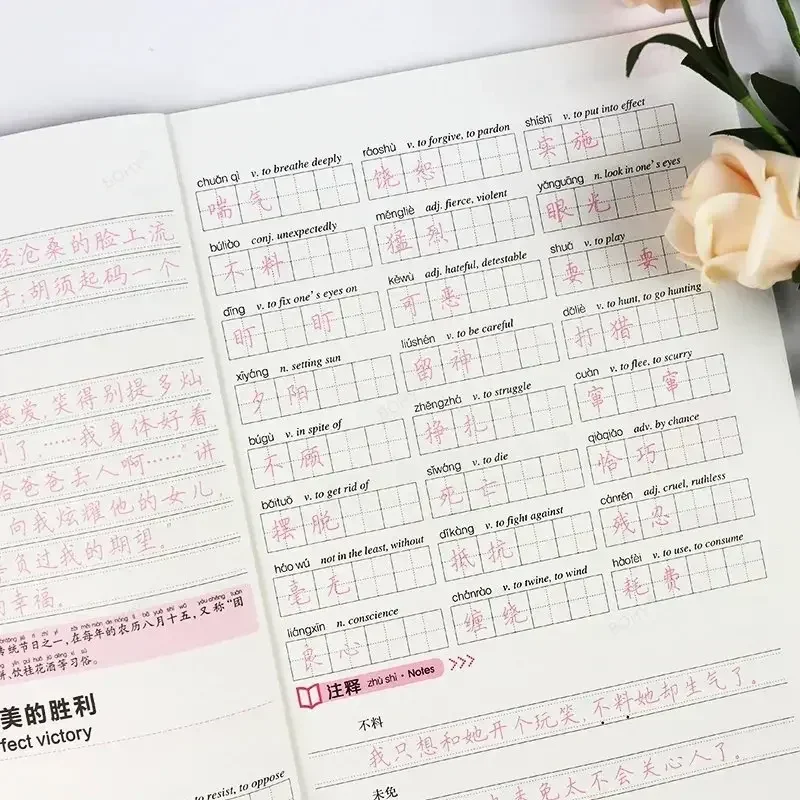 经沧桑的脸上流
手;胡须起码一个
慈爱,笑得别提多灿
到了……我身体好着
给爸爸丢人啊……"讲
向我炫耀他的女儿,
负过我的期望。"
的幸福。
统节日之一,在每年的农历八月十五,又称"团
饮桂花酒等习俗。
美的胜利
fect victory
to resist, to oppose
chuǎn qì v. to breathe deeply
喘气
búliào conj. unexpectedly
不料
dīng v. to fix one's eyes on
盯 盯
xīyáng n. setting sun
夕阳
búgù v. in spite of
不顾
bǎituō v. to get rid of
摆脱
háo wú not in the least, without
毫无
liángxīn n. conscience
良心
ráoshù v. to forgive, to pardon
饶恕
měngliè adj. fierce, violent
猛烈
kěwù adj. hateful, detestable
可恶
liúshén v. to be careful
留神
zhēngzhá v. to struggle
挣扎
sǐwáng v. to die
死亡
dǐkàng v. to fight against
抵抗
chánrào v. to twine, to wind
缠绕
shíshī v. to put into effect
实施
yǎnguāng n. look in one's eyes
眼光
shuǎ v. to play
耍 耍
dǎliè v. to hunt, to go hunting
打猎
cuàn v. to flee, to scurry
窜 窜
qiàqiǎo adv. by chance
恰巧
cánrěn adj. cruel, ruthless
残忍
hàofèi v. to use, to consume
耗费
注释 zhù shì · Notes
不料
我只想和她开个玩笑,不料她却生气了。
未免
未免太不会关心人了。